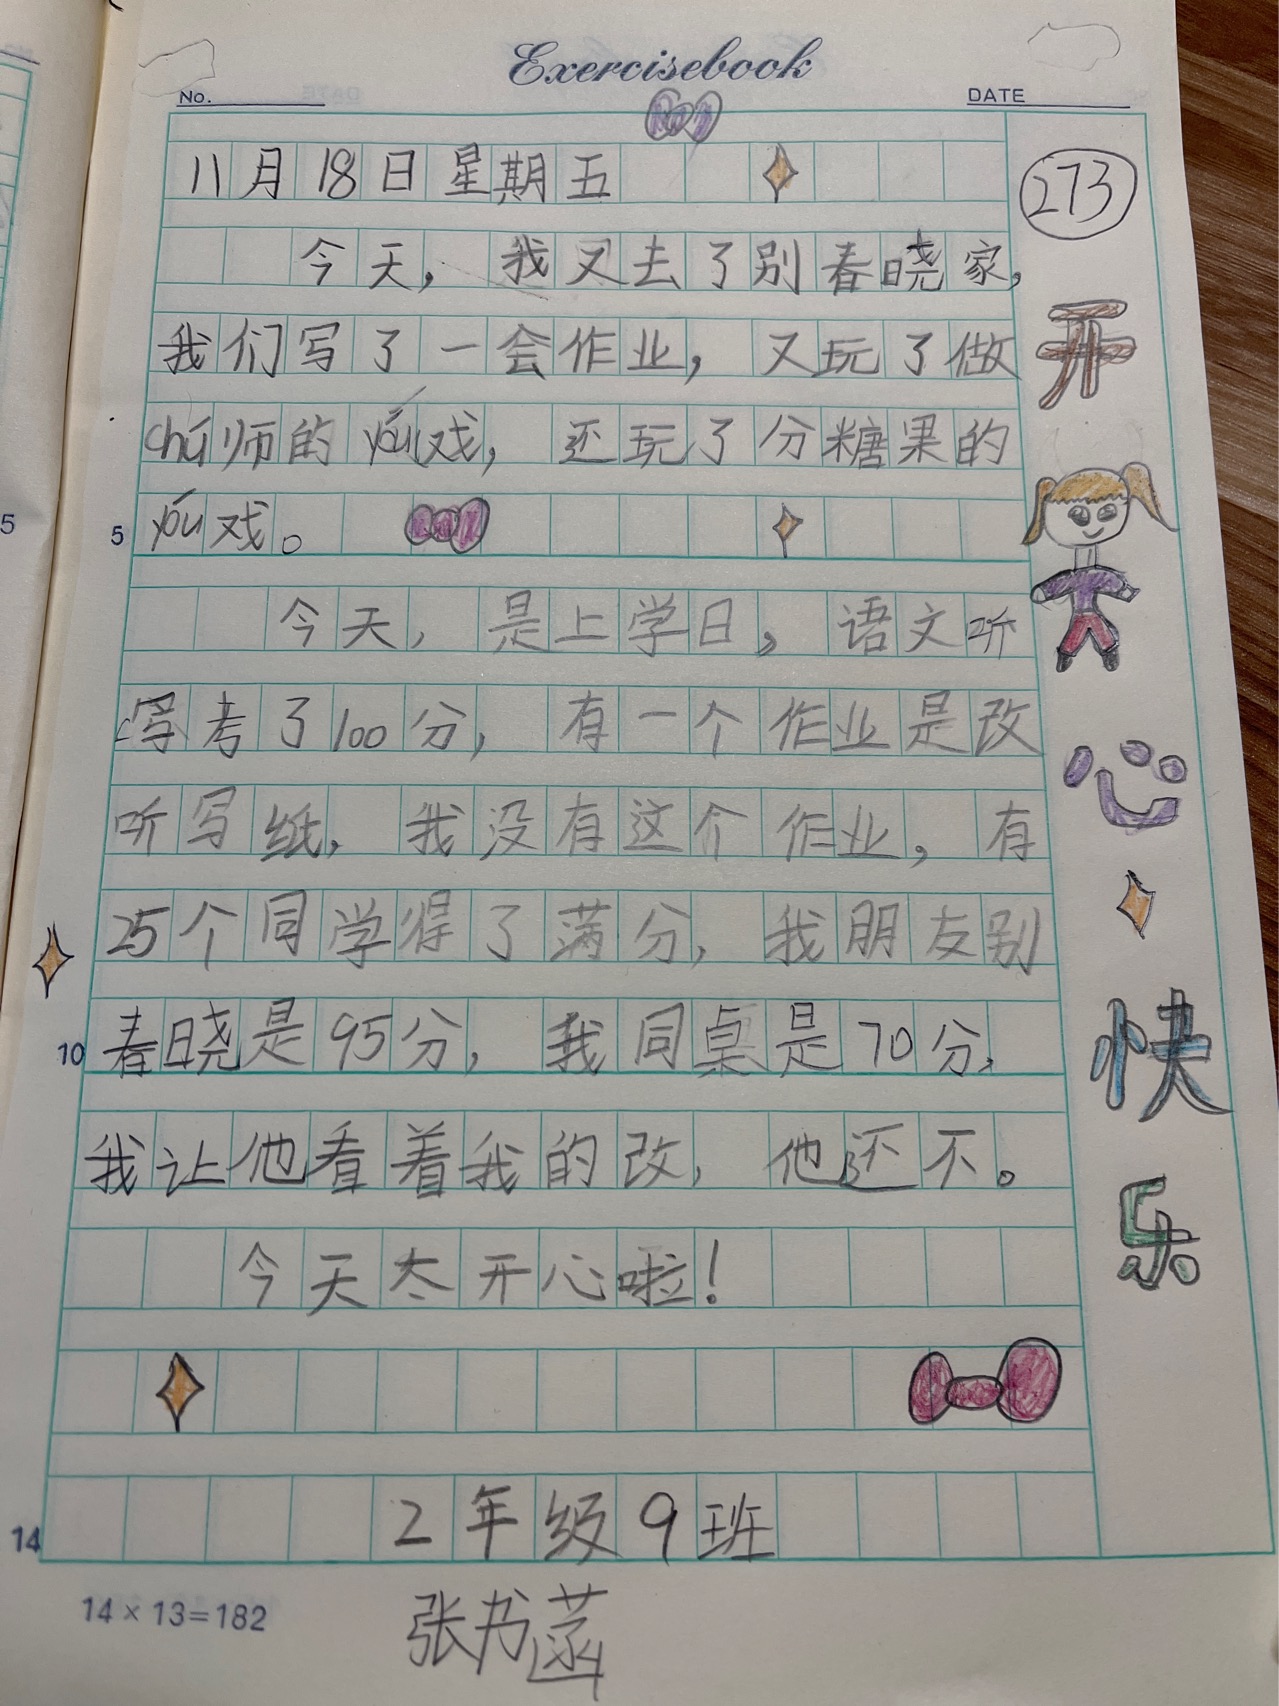 Exercisebook
No.
DATE
11月18日星期五
273
今天，我又去了别春晓家，
我们写了一会作业，又玩了做
chú师的yóu戏，还玩了分糖果的
yóu戏。
今天，是上学日，语文听
写考了100分，有一个作业是改
听写纸，我没有这个作业，有
25个同学得了满分，我朋友别
春晓是95分，我同桌是70分，
我让他看着我的改，他还不。
今天太开心啦！
2年级9班
张书菡
开
心
快
乐
5
10
14
14×13=182
5